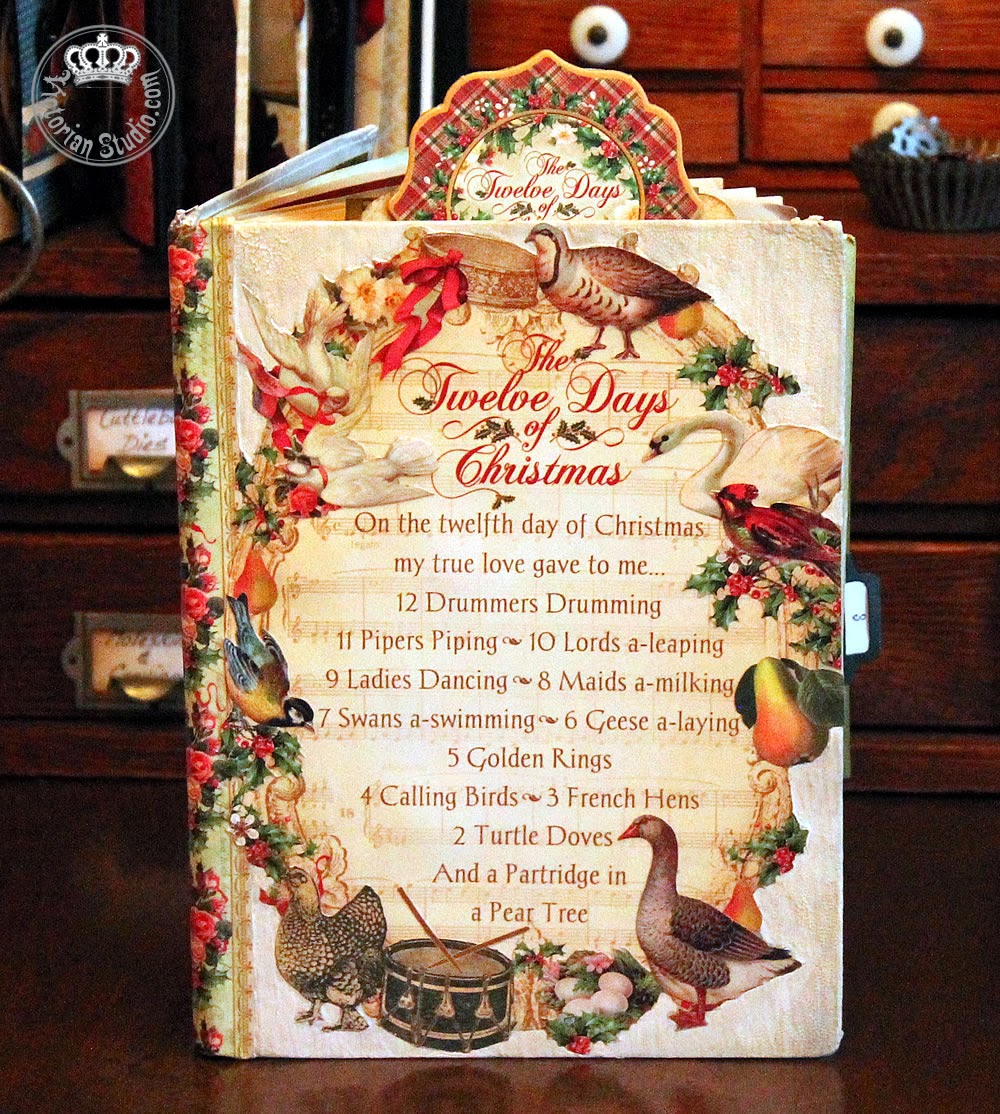 Victorian Studio.com
The
Twelve Days
of
The
Twelve Days
of
Christmas
On the twelfth day of Christmas
my true love gave to me...
12 Drummers Drumming
11 Pipers Piping ~ 10 Lords a-leaping
9 Ladies Dancing ~ 8 Maids a-milking
7 Swans a-swimming ~ 6 Geese a-laying
5 Golden Rings
4 Calling Birds ~ 3 French Hens
2 Turtle Doves
And a Partridge in
a Pear Tree
18